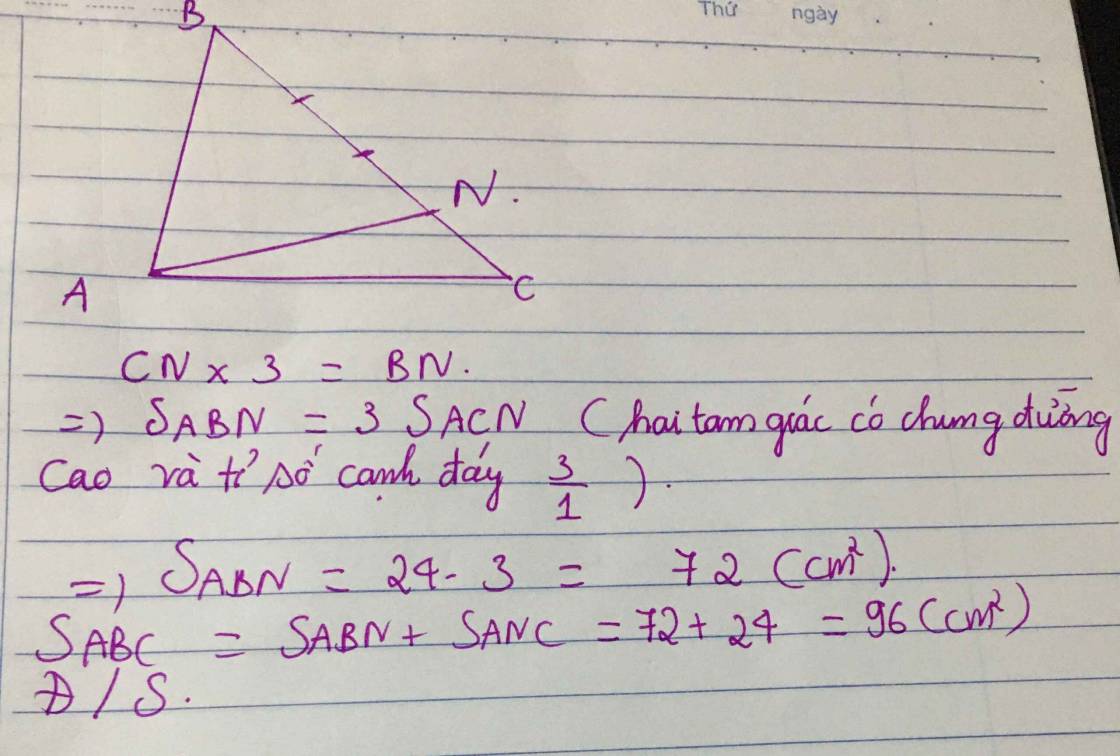 Thứ ngày . .
B
N.
A
C
CN x 3 = BN.
=) SABN = 3 SACN (hai tam giác có chung đường
Cao và tỉ số cạnh đáy 3/1 ).
=) SABN = 24 - 3 = 72 (cm²).
SABC = SABN + SANC = 72 + 24 = 96 (cm²)
Đ/S.